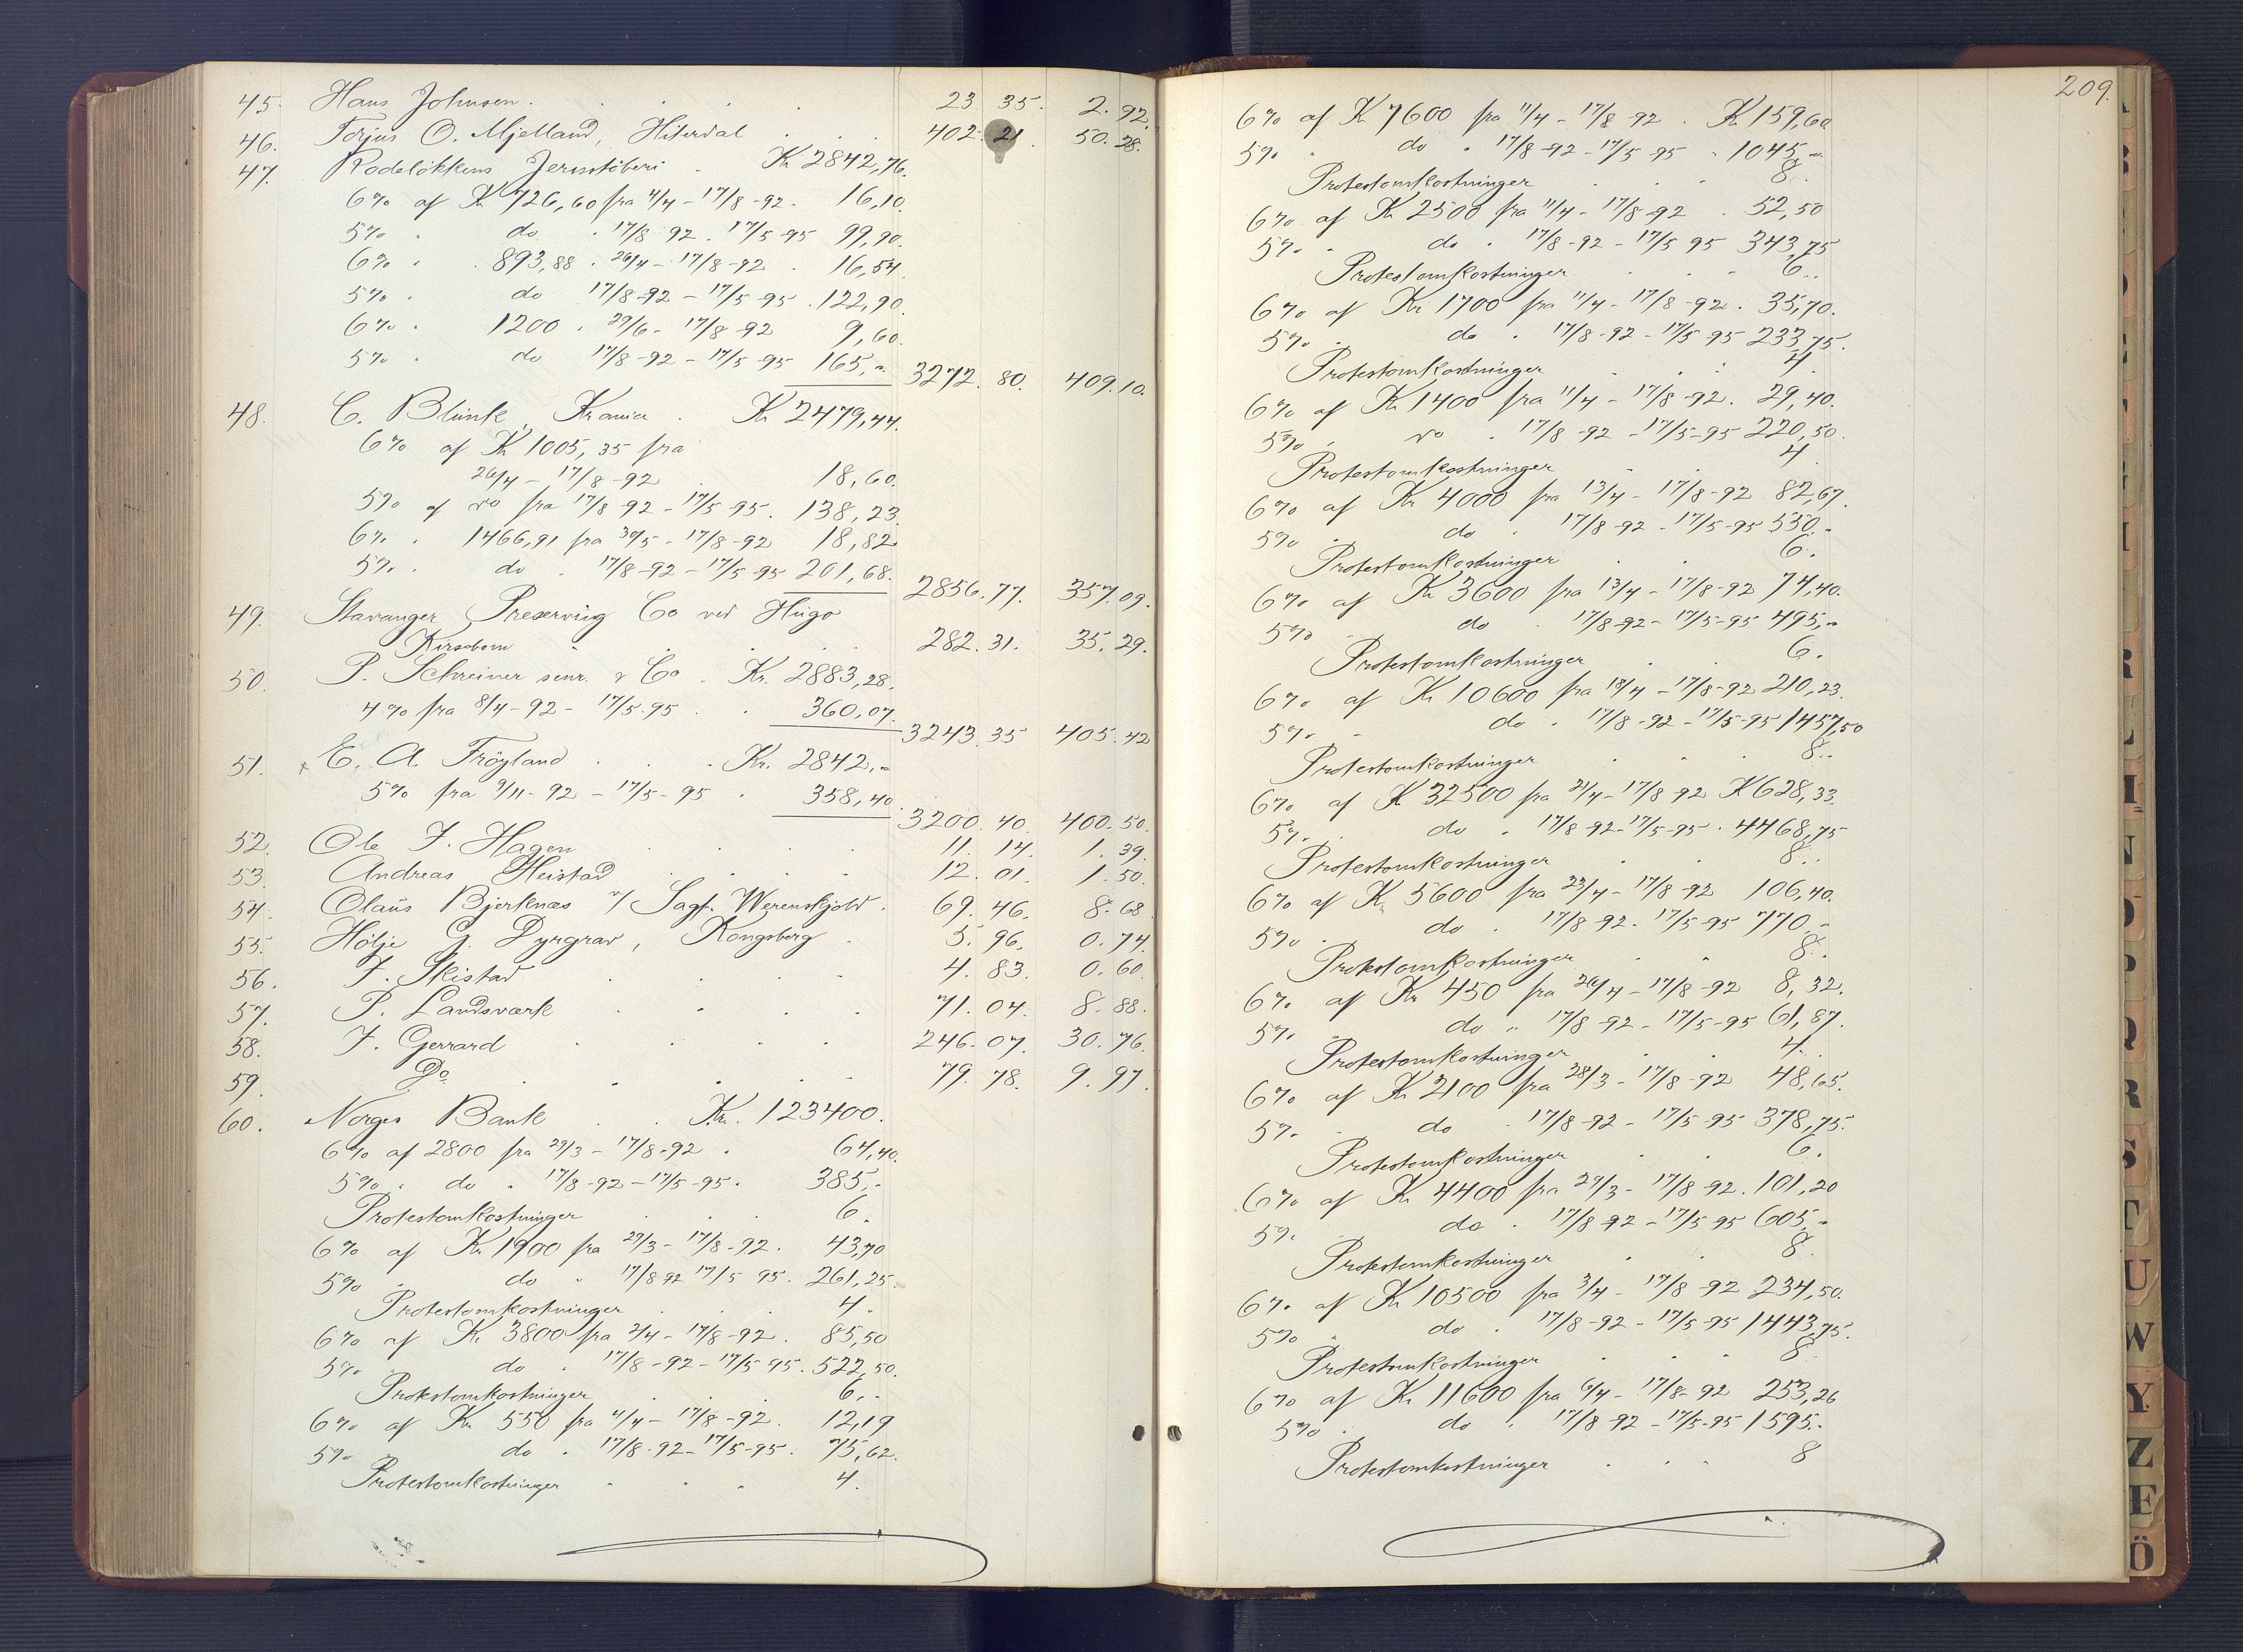 45. Hans Johnsen. 23 35. 2.92.
46. Torjus O. Mjelland, Hiterdal 402. 21. 50.28.
47. Rodeløkkens Jernstøberi Kr 2842,76.
6% af Kr 726,60 fra 11/4 - 17/8 - 92 - 16,10.
5% do 17/8 92 - 17/5 95 99,90.
6% 893,88 26/4 - 17/8 - 92 16,54.
5% do 17/8 92 - 17/5 - 95 122,90.
6% 1200 29/6 - 17/8 92 9,60.
5% do 17/8 - 92 - 17/5 95 165,- 3272. 80. 409.10.
48. C. Blunk, Krania Kr 2479,44.
6% af Kr 1005,35 fra
26/4 - 17/8 - 92 18,60.
5% af do fra 17/8 92 - 17/5 95. 138,23.
6% 1466,91 fra 30/5 - 17/8 - 92 18,82
5% do 17/8 - 92 - 17/5 95 201,68. 2856.77. 357.09.
49. Stavanger Preserving Co ved Hugo
Kirsebom 282.31. 35.29.
50. P. Schreiner senr. & Co. Kr. 2883,28.
4% fra 8/4 - 92 - 17/5 95 360,07. 3243.35 405.42
51. E. A. Frøyland Kr. 2842,-
5% fra 9/11 - 92 - 17/5 - 95 358,40. 3200.40. 400.50.
52. Ole J. Hagen 11. 14. 1.39.
53. Andreas Heistad 12. 01. 1.50.
54. Olaus Bjerknæs v/ Sagf. Werenskjold. 69.46. 8.68
55. Hölje G. Dyrgrav, Kongsberg 5.96. 0.74.
56. J. Skistad 4.83. 0.60.
57. P. Landsværk 71.04. 8.88.
58. J. Gerrard 246.07. 30.76.
59. Do 79.78. 9.97.
60. Norges Bank Kr. 123400.
6% af 2800 fra 29/3 - 17/8 - 92 64,40.
5% do 17/8 - 92 - 17/5 - 95. 385,-
Protestomkostninger 6.
6% af Kr 1900 fra 29/3 - 17/8 - 92. 43,70
5% do 17/8 92 17/5 95. 261,25.
Protestomkostninger 4.
6% af Kr. 3800 fra 2/4 - 17/8 - 92. 85,50
5% do 17/8 - 92 - 17/5 95. 522,50.
Protestomkostninger 6.-
6% af Kr 550 fra 4/4 - 17/8 - 92. 12,19
5% do 17/8 - 92 - 17/5 - 95. 75,62.
Protestomkostninger 4.
209.
6% af Kr 7600 fra 11/4 - 17/8 - 92. Kr 159,60
5% do 17/8 - 92 - 17/5 95 1045,-
Protestomkostninger 8.
6% af Kr 2500 fra 11/4 - 17/8 - 92 52,50
5% do 17/8 - 92 - 17/5 95 343,75
Protestomkostninger 6.
6% af Kr 1700 fra 11/4 - 17/8 - 92. 35,70.
5% do 17/8 - 92 - 17/5 95 233,75.
Protestomkostninger 4
6% af Kr 1400 fra 11/4 - 17/8 - 92. 29,40.
5% do 17/8 - 92 - 17/5 - 95 220,50.
Protestomkostninger 4
6% af Kr 4000 fra 13/4 - 17/8 - 92 82,67.
5% do 17/8 - 92 - 17/5 - 95 550.-
Protestomkostninger 6.
6% af Kr 3600 fra 13/4 - 17/8 - 92 74,40.
5% do 17/8 - 92 - 17/5 - 95 495,-
Protestomkostninger 6.
6% af Kr 10600 fra 18/4 - 17/8 - 92 210,23.
5% do 17/8 - 92 - 17/5 - 95 1457,50
Protestomkostninger 8.
6% af Kr 32500 fra 21/4 - 17/8 92 Kr 628,33.
5% do 17/8 92 - 17/5 - 95. 4468,75
Protestomkostninger 8.
6% af Kr 5600 fra 23/4 - 17/8 92 106,40.
5% do 17/8 - 92. 17/5 - 95 770.-
Protestomkostninger 8.
6% af Kr 450 fra 26/4 - 17/8 - 92 8,32.
5% do 17/8 92 - 17/5 - 95 61,87.
Protestomkostninger 4.
6% af Kr 2100 fra 28/3 - 17/8 - 92 48,65.
5% do 17/8 - 92 - 17/5 95 378,75.
Protestomkostninger 6.
6% af Kr 4400 fra 29/3 - 17/8 92. 101,20
5% do 17/8 92 - 17/5 95 605,-
Protestomkostninger 8.
6% af Kr 10500 fra 3/4 - 17/8 92 234,50.
5% do 17/8 - 92 - 17/5 - 95 1443,75.
Protestomkostninger 8
6% af Kr 11600 fra 6/4 - 17/8 - 92 253,26
5% do 17/8 - 92 - 17/5 - 95 1595.-
Protestomkostninger 8